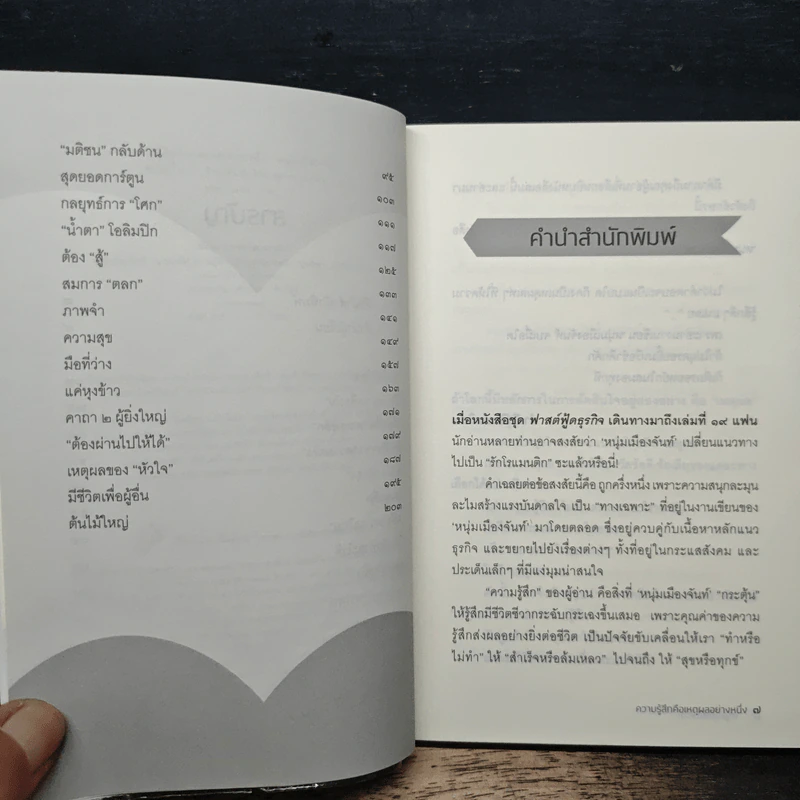 “มติชน” กลับด้าน ๙๕
สุดยอดการ์ตูน ๑๐๓
กลยุทธ์การ “โศก” ๑๑๑
“น้ำตา” โอลิมปิก ๑๑๗
ต้อง “สู้” ๑๒๕
สมการ “ตลก” ๑๓๓
ภาพจำ ๑๔๑
ความสุข ๑๔๙
มือที่ว่าง ๑๕๗
แค่หุงข้าว ๑๖๓
คาถา ๒ ผู้ยิ่งใหญ่ ๑๗๑
“ต้องผ่านไปให้ได้” ๑๗๙
เหตุผลของ “หัวใจ” ๑๘๗
มีชีวิตเพื่อผู้อื่น ๑๙๕
ต้นไม้ใหญ่ ๒๐๓
คำนำสำนักพิมพ์
เมื่อหนังสือชุด ฟาสต์ฟู้ดธุรกิจ เดินทางมาถึงเล่มที่ ๑๙ แฟน
นักอ่านหลายท่านอาจสงสัยว่า ‘หนุ่มเมืองจันท์’ เปลี่ยนแนวทาง
ไปเป็น “รักโรแมนติก” ซะแล้วหรือนี่!
คำเฉลยต่อข้อสงสัยนี้คือ ถูกครึ่งหนึ่ง เพราะความสนุกละมุน
ละไมสร้างแรงบันดาลใจ เป็น “ทางเฉพาะ” ที่อยู่ในงานเขียนของ
‘หนุ่มเมืองจันท์’ มาโดยตลอด ซึ่งอยู่ควบคู่กับเนื้อหาหลักแนว
ธุรกิจ และขยายไปยังเรื่องต่างๆ ทั้งที่อยู่ในกระแสสังคม และ
ประเด็นเล็กๆ ที่มีแง่มุมน่าสนใจ
“ความรู้สึก” ของผู้อ่าน คือสิ่งที่ ‘หนุ่มเมืองจันท์’ “กระตุ้น”
ให้รู้สึกมีชีวิตชีวากระฉับกระเฉงขึ้นเสมอ เพราะคุณค่าของความ
รู้สึกส่งผลอย่างยิ่งต่อชีวิต เป็นปัจจัยขับเคลื่อนให้เรา “ทำหรือ
ไม่ทำ” ให้ “สำเร็จหรือล้มเหลว” ไปจนถึง ให้ “สุขหรือทุกข์”
ความรู้สึกคือเหตุผลอย่างหนึ่ง ๗